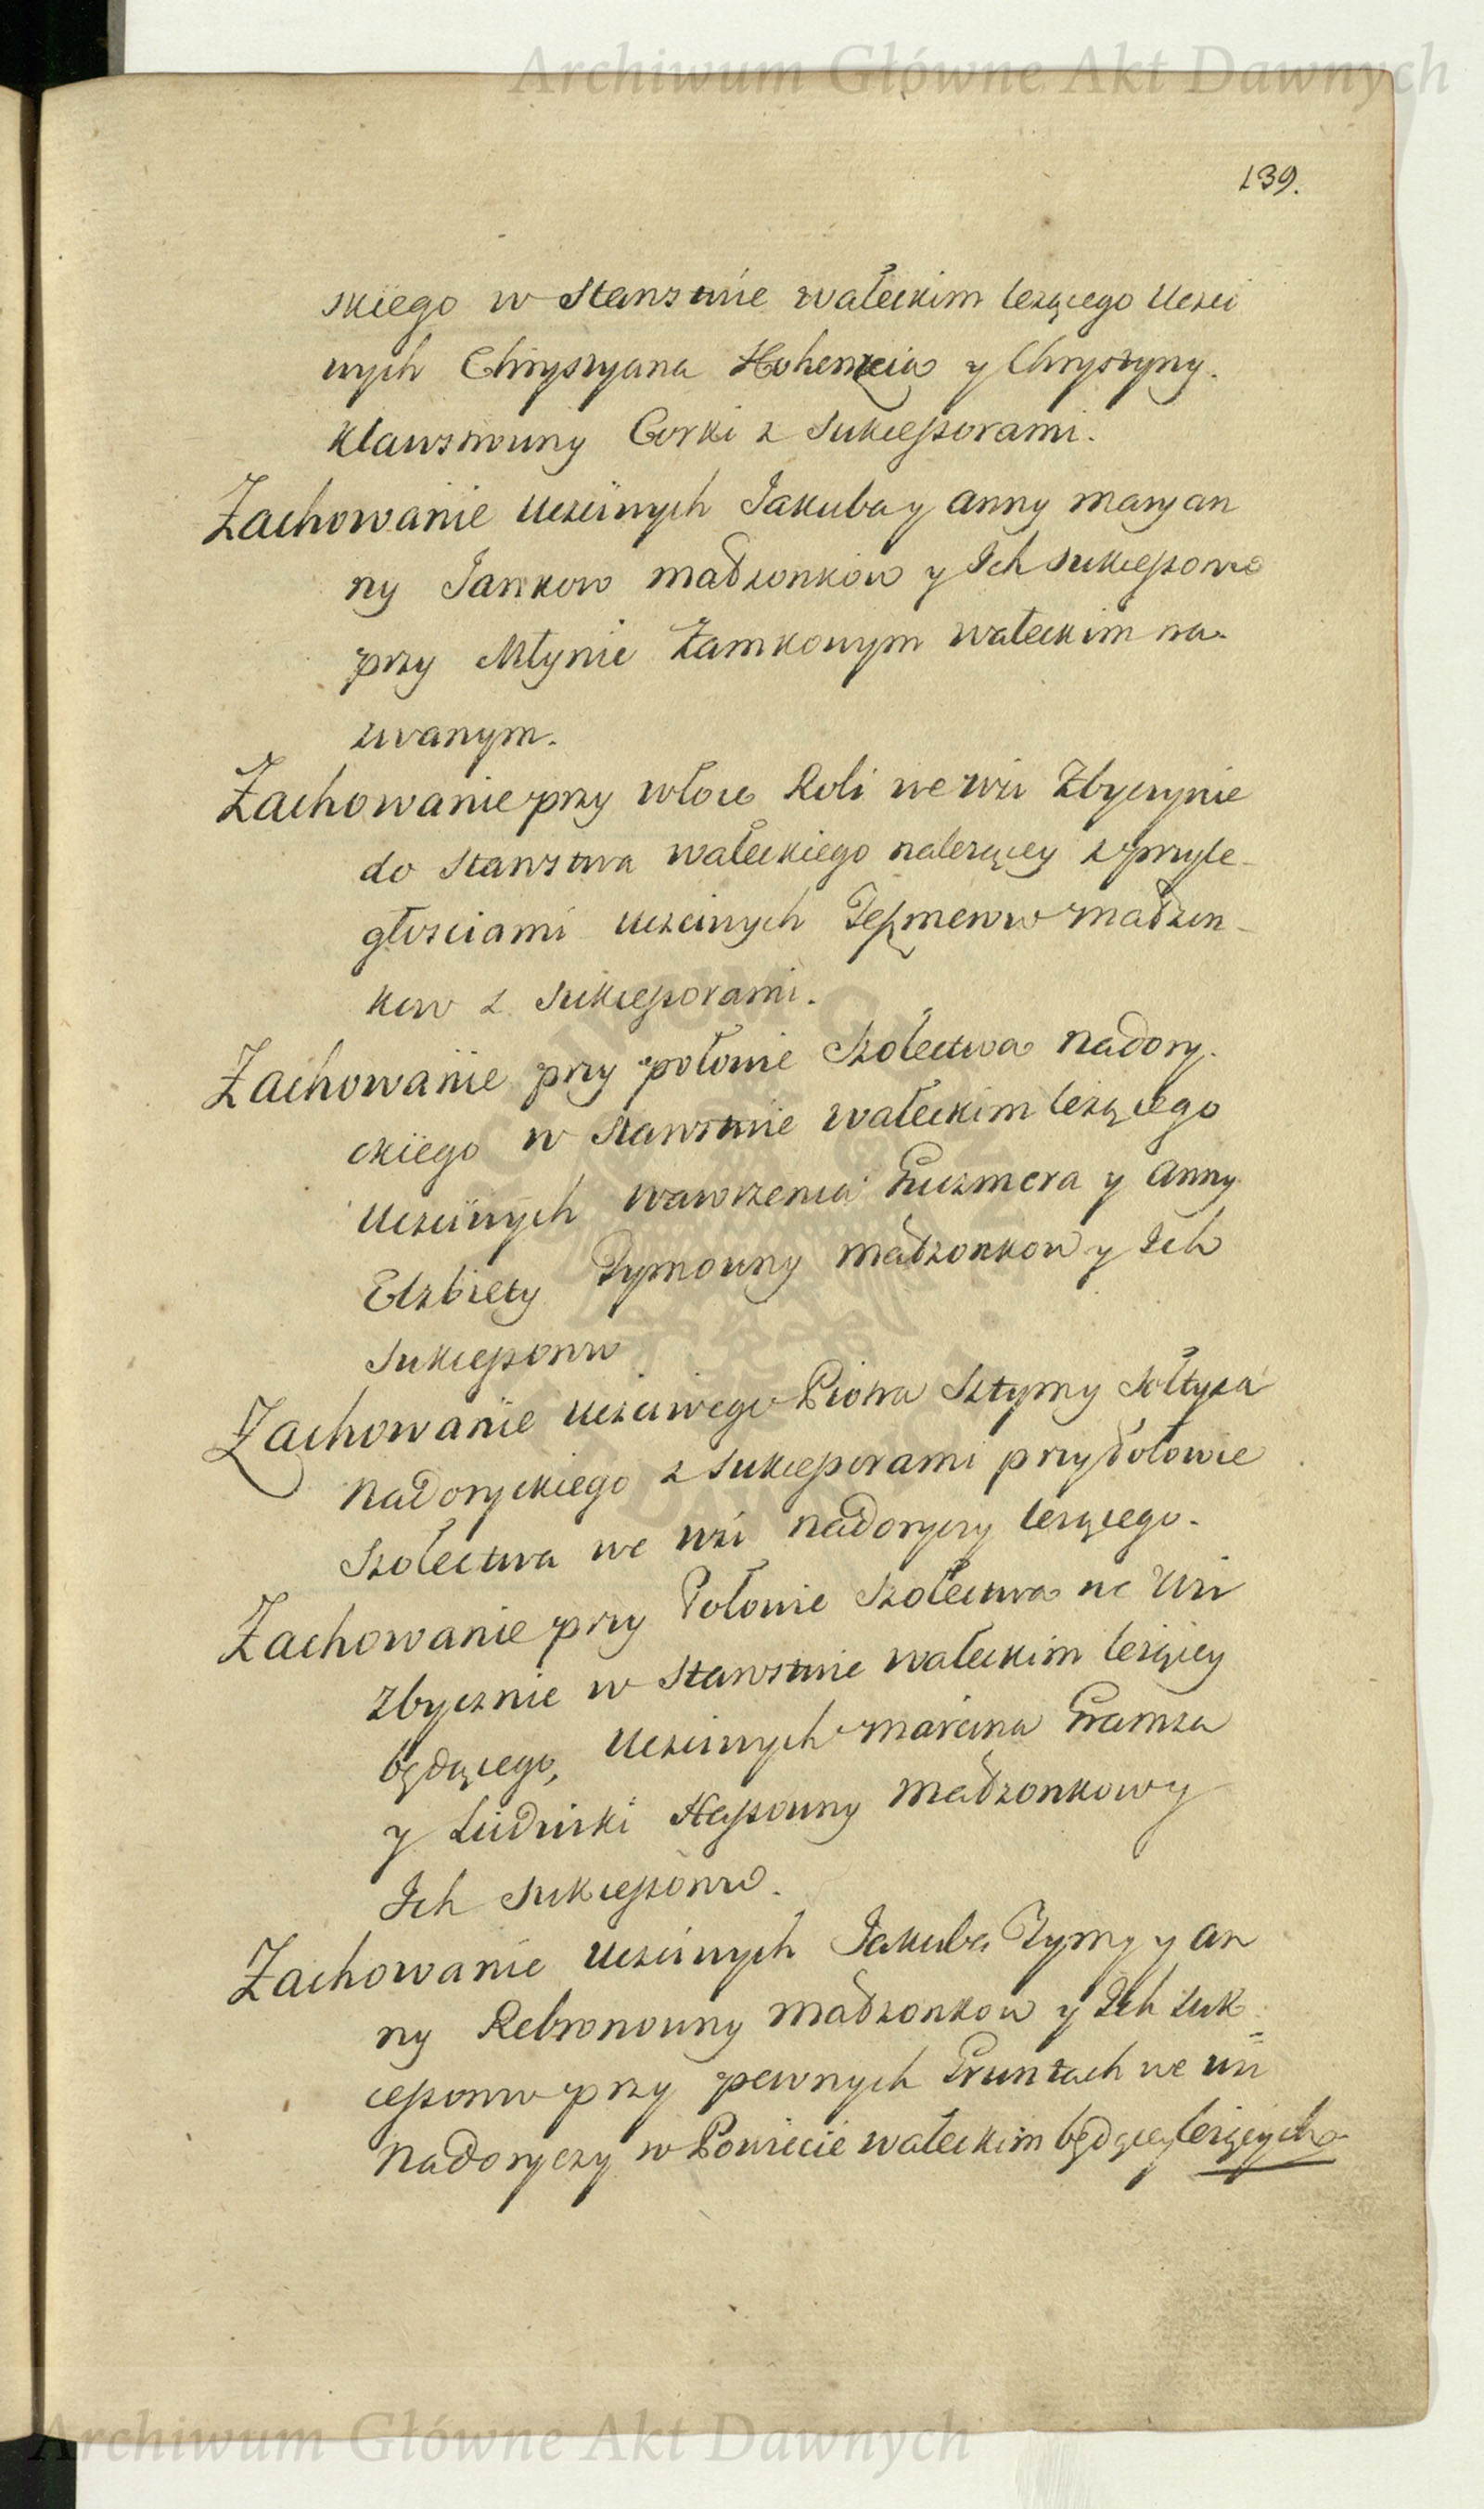 Archiwum Główne Akt Dawnych
139.
skiego w Starostwie wałeckim leżącego Uczci
wych Chrystyana y Chrystyny
Corki z Sukcessorami.
Zachowanie Uczciwych Jakuba y Anny Maryan
ny Jankow Małżonkow y Ich Sukcessorow
przy Młynie Zamkowym wałeckim na-
zwanym.
Zachowanie przy włoce Roli we wsi Zbyczynie
do Starostwa wałeckiego należącey z przyle-
głościami Uczciwych Małżon-
kow z Sukcessorami.
Zachowanie przy połowie Szołectwa Nadory-
ckiego w Starostwie wałeckim leżącego
Uczciwych Wawrzenca y Anny
Elżbiety Tymowny Małżonkow y Ich
Sukcessorow
Zachowanie Uczciwego Piotra Sztymy Sołtysa
Nadoryckiego z Sukcessorami przy Połowie
Szołectwa we wsi Nadoryczy leżącego.
Zachowanie przy Połowie Szołectwa we Wsi
Zbycznie w Starostwie wałeckim leżącey
będącego, Uczciwych Marcina Gramza
y Ludwiki Hassowny Małżonkow y
Ich Sukcessorow.
Zachowanie Uczciwych Jakuba Tymy y An
ny Rebronowny Małżonkow y Ich Suk=
cessorow przy pewnych Gruntach we wsi
Nadoryczy w Powiecie wałeckim będącey leżących
Archiwum Główne Akt Dawnych